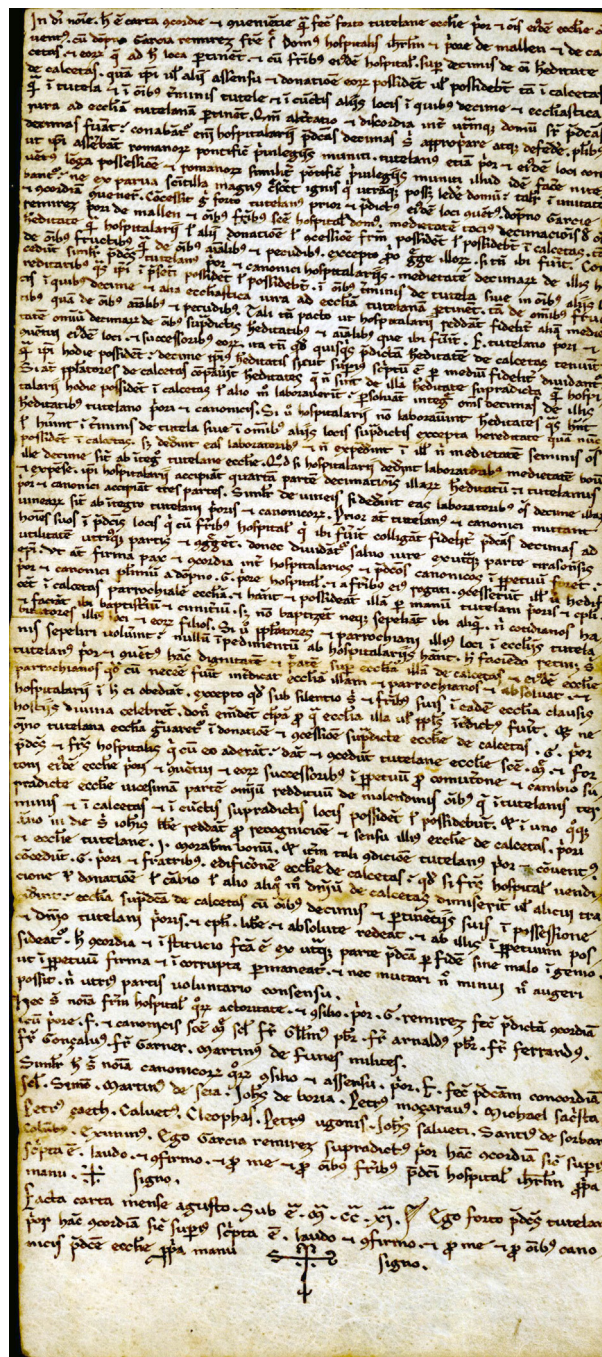 In dei noīe. h̄ ē carta ɔcordie ⁊ ɔueniētie q̄ fec̄ forto tutelane eccl̄ie p̄or ⁊ oīs eiꝰdē eccl̄ie
uentꝰ. cū dōpno Garcia remirez fr̄e domꝰ hospitalis ih̄rlm̄ ⁊ p̄ore de mallen ⁊ de ca
cetas. ⁊ eorꝝ q̄ ad h̄ loca ꝑtinēt. ⁊ cū fr̄ibꝫ eiꝰdē hospital̄. suꝑ decimis de oī h̄editate
de calcetas. quā ip̄i ul̄ aliq̄ assensu ⁊ donatiōe eorꝝ possidēt ul̄ possidebūt tā ī calcetas
q̄ ī tutela ⁊ ī oībꝫ t̄minis tutele ⁊ ī cūctis alijs locis ī quibꝫ decime ⁊ eccl̄iastica
iura ad eccl̄iā tutelanā ꝑtinēt. alt̄catio ⁊ discordia int̄ ut̄mqꝫ domū sr̄ p̄dc̄as
decimas fuāt. conabāt̄ em̄ hospitalarij p̄dc̄as decimas s̄ appropare atqꝫ defēde. plibꝫ
ut ip̄i assēbāt romanorꝝ pontificū p̄uilegijs muniti. tutelanꝰ etiā p̄or ⁊ eiꝰdē loci con
uētꝰ lōga possessiōe ⁊ romanorꝝ similit̄ pōtificū p̄uilegijs muniti illud idē facē nite
bant̄. ne ex parua scītilla magnꝰ c̄scet ignis q̄ utrāqꝫ poss; ledē domū. talr̄ ī unitatē
⁊ ɔcordiā ɔuenēt. Cōcessit g̊ forto tutelanꝰ prior ⁊ p̄dictꝰ eiꝰdē loci ɔuētꝰ. dōpno Garcie
remirez p̄ori de mallen ⁊ oībꝫ fr̄ibꝫ sc̄e hospital̄ domꝰ. medietatē tociꝰ decimaciōis
heditate q̄ hospitalarij l̄ aliq̄ donatiōe l̄ ɔcessiōe fr̄m̄ possidēt l̄ possidebt̄ ī calcetas.
de oībꝫ fructibꝫ q̄ de oībꝫ aīalibꝫ ⁊ pecudibꝫ. excepto illorꝝ. si tn̄ ibi fuīt.
cedūt simlr̄ p̄dc̄ꝰ tutelanꝰ p̄or ⁊ canonici hospitalarijs. medietatē decimarꝝ de illis
reditatibꝫ q̄s ip̄i ī p̄sēti possidēt l̄ possidebt̄. ī oībꝫ t̄minis de tutela siue in oībꝫ alijs
cis ī quibꝫ decime ⁊ alia eccl̄iastica iura ad eccl̄iā tutelanā ꝑtinēt. tā de omībꝫ fruc
tibꝫ quā de oībꝫ aīalibꝫ ⁊ pecudibꝫ. Tali tn̄ pacto ut hospitalarij reddāt fidelit̄ aliā medie
tatē omiū decimarꝝ de oībꝫ sup̄dictis heditatibꝫ ⁊ aīalibꝫ que ibi fūit. F. tutelano p̄ori ⁊
ɔuētui eiꝰdē loci. ⁊ successoribꝫ eorꝝ. ita tn̄ qd̄ quisq̄s p̄dictā heditatē de calcetas tenuit
q̄ ip̄i hodie possidēt. decime ip̄iꝰ heditatis sicut supiꝰ sc̄ptū ē ꝑ mediū fidelit̄ diuidant̄.
Si āt pp̄latores de calcetas cōparūt heditates q̄ n̄ sint de illa heditate supradicta q̄ hospi
talarij hodie possidēt ī calcetas l̄ alio m̊ laborauerūt. ꝑsoluāt integr̄ om̄s decimas de illis
heditatibꝫ tutelano p̄ori ⁊ canonicis. Si ů hospitalarij nō laborauīt heditates q̄s hn̄t
l̄ hūint ī t̄minis de tutela siue ī omībꝫ alijs locis sup̄dictis excepta hereditate quā nūc
possidēt ī calcetas. s; dedint eas laboratoribꝫ ⁊ n̄ expēdīt ī ill̄ n̄ medietatē seminis
ille decime sīt ab īteg̊ tutelane eccl̄ie. Qd̄ si hospitalarij dedīt laboratoribꝫ medietatē boū
⁊ expēse. ip̄i hospitalarij accipiāt quartā partē decimatiōis illarꝝ heditatū ⁊ tutelanꝰ
p̄or ⁊ canonici accipiāt tres partes. Simlr̄ de uineis si dedint eas laboratoribꝫ oīs decime illarꝝ
uinearꝝ sīt ab ītegro tutelani p̄oris ⁊ canonicorꝝ. Prior āt tutelanꝰ ⁊ canonici mittant
hoīes suos ī p̄dcis locis q̄ cū fr̄ibꝫ hospital̄ q̄ ibi fūīt colligāt fidelit̄ p̄dc̄as decimas ad
utilitatē utriꝰqꝫ partis ⁊ ɔg̊get. donec diuidāt̄ saluo iure exutᷓqꝫ parte tirasonēsis
ep̄i. Vt āt firma pax ⁊ ɔcordia int̄ hospitalarios ⁊ p̄dcos canonicos ī ꝑpetuū foret.
p̄or ⁊ canonici plīmū a dōpno. G. p̄ore hospital̄. ⁊ a fr̄ibꝫ eiꝰ rogati. ɔcesserūt ill̄ ut hedif
cēt ī calcetas parrochialē eccl̄iā. ⁊ hāt̄ ⁊ possideāt illā ꝑ manū tutelani p̄oris ⁊ cpl̄i.
⁊ faciāt ibi baptist̄iū ⁊ cimit̄iū. s; nō baptizēt neqꝫ sepeliāt ibi aliq̄. n̄ cotidianos ha
bitatores illiꝰ loci ⁊ eorꝝ filios. Si ů pp̄latores ⁊ parrochiani illiꝰ loci ī eccl̄ijs tutela
nis sepeliri uolūit. nullū īpedimētū ab hospitalarijs hānt. h̄ faciēdo retin; s̄
tutelanꝰ p̄or ⁊ ɔuētꝰ hāc dignitatē ⁊ p̄tatē. suꝑ eccl̄ia illā de calcetas ⁊ eiꝰdē eccl̄ie
parrochianos qd̄ cū necēē fuīt īt̄dicat eccl̄iā illam ⁊ parrochianos ⁊ absoluat. ⁊
hospitalarij ī h̄ ei obediāt. excepto qd̄ sub silentio s̄ ⁊ fr̄ibꝫ suis ī eadē eccl̄ia clausis
hostijs diuina celebret. don̄ emēdet̄ cl̄pa ꝑ q̄ eccl̄ia illa ul̄ ppl̄s īt̄dictꝰ fuīt. Qz ne
oīno tutelana eccl̄ia g̊uaret̄ ī donatiōe ⁊ ɔcessiōe sup̄dicte eccl̄ie de calcetas. G. p̄or
p̄dcꝰ ⁊ fr̄s hospitalis q̄ cū eo aderāt. dāt ⁊ ɔcedūt tutelane eccl̄ie sc̄e. M̄. ⁊ for
toni eiꝰdē eccl̄ie p̄ori ⁊ ɔuētui ⁊ eorꝝ successoribꝫ ī ꝑpetuū ꝓ comutōne ⁊ cambio su
pradicte eccl̄ie uicesimā partē omīu reddituū de molendinis oībꝫ q̄ ī tutelanis ter
minis ⁊ ī calcetas ⁊ ī cūctis supradictis locis possidēt l̄ possidebūt. Qz ī uno q̊qꝫ
āno in die s̄ ioh̄is bb̄e reddāt ꝓ recogniciōe ⁊ sensu illiꝰ eccl̄ie de calcetas. p̄ori
⁊ eccl̄ie tutelane. I. morab̄tm bonū. Qz itm̄ tali ɔdiciōe tutelanꝰ p̄or ⁊ cōuent;
cōcedūt. G. p̄ori ⁊ fr̄atribꝫ. edificōnē eccl̄ie de calcetas. qd̄ si fr̄s hospital̄ uendi
cione l̄ donatiōe l̄ cābio l̄ alio aliq̊ m̊ dn̄iū de calcetas dimiserīt ul̄ alicui tra
didīnt. eccl̄ia sup̄dcā de calcetas cū oībꝫ decimis ⁊ ꝑtinētijs suis. ī possessionē
⁊ dn̄iū tutelani p̄oris. ⁊ cpl̄i. lib̄e ⁊ absolute redeat. ⁊ ab illis ī ꝑpetuum pos
sideat̄. h̄ ɔcordia ⁊ īstitucio fcā ē ex utᷓqꝫ parte p̄dca ꝑ fidē sine malo ī genio.
ut ī ꝑpetuū firma ⁊ ī corrupta ꝑmaneat. ⁊ nec mutari n̄ minui n̄ augeri
possit. n̄ utriꝰ partis uoluntario consensu.
Hec s̄ noīa fr̄m hospital̄ q̊rꝝ actoritate ⁊ ɔsilio. p̄or. G. remirez fec̄ p̄dictā ɔcordiā
cū p̄ore. F. ⁊ canonicis sc̄e m̄. scl̄. fr̄. Gll̄mꝰ pb̄r. fr̄. arnaldꝰ pb̄r. fr̄. ferrandꝰ.
fr̄. Gonsaluꝰ. fr̄. Garner. Martinꝰ de Funes milites.
Simlr̄ h̄ s̄ noīa canonicorꝝ q̊rꝝ ɔsilio ⁊ assensu. p̄or. F. fec̄ p̄dcām concordiā
scl̄. Simō. Martinꝰ de seia. Ioh̄s de boria. Petrꝰ mozarauꝰ. Michael sac̄sta
Petrꝰ gaeth. Caluetꝰ. Cleophas. Petrꝰ ugonis. Ioh̄s salueti. Santiꝰ de sorbar
Colūbꝰ. Eximinꝰ. Ego Garcia remirez supradictꝰ p̄or hāc ɔcordiā sic̄ supiꝰ
sc̄pta ē. laudo ⁊ ɔfirmo. ⁊ ꝓ me ⁊ ꝓ oībꝫ fr̄ibꝫ p̄dci hospital̄ ih̄rlm̄ ꝓpa
manu. signo.
Facta carta mense agusto. Sub ē. M̄. CC. XI. Ego forto p̄dcꝰ tutelan
p̄or hāc ɔcordiā sic̄ supiꝰ sc̄pta ē. laudo ⁊ ɔfirmo. ⁊ ꝓ me ⁊ ꝓ oībꝫ cano
nicis p̄dce eccl̄ie ꝓpa manu signo.